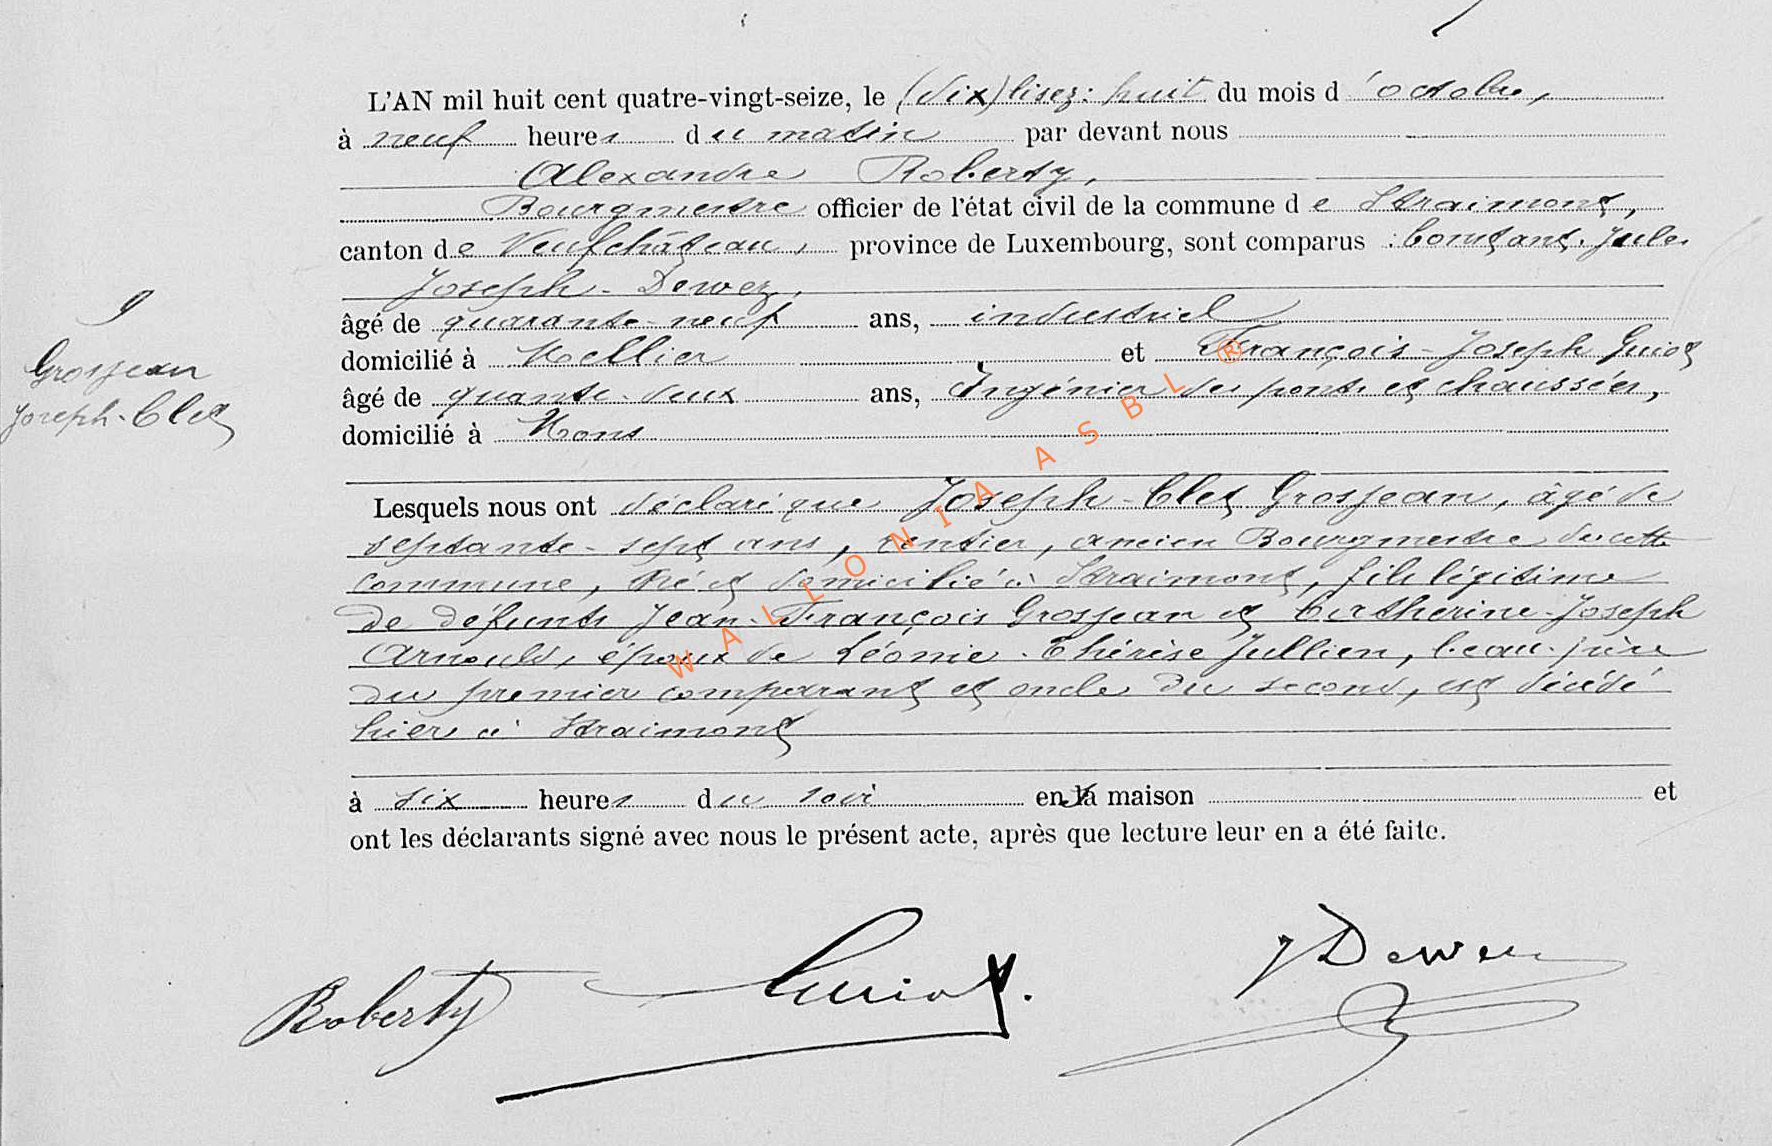 L'AN mil huit cent quatre-vingt-seize, le (dix) lisez: huit du mois d'octobre,
à neuf heures du matin par devant nous
Alexandre Roberty,
Bourgmestre officier de l'état civil de la commune de Straimont,
canton de Neufchâteau, province de Luxembourg, sont comparus : Constant. Jules
Joseph - Dewez,
âgé de quarante-neuf ans, industriel
domicilié à Mellier et François-Joseph Guiot
âgé de quante-deux ans, Ingénier des ponts et chaussées,
domicilié à Mons
9
Grosjean
Joseph-Clet
Lesquels nous ont déclaré que Joseph-Clet Grosjean, âgé de
septante-sept ans, rentier, ancien Bourgmestre de cette
commune, né et domicilié à Straimont, fils légitime
de défunts Jean-François Grosjean et Catherine-Joseph
Arnould, époux de Léonie-Thérèse Jullien, beau-père
du premier comparant et oncle du second, est décédé
hier à Straimont
à six heures du soir en sa maison et
ont les déclarants signé avec nous le présent acte, après que lecture leur en a été faite.
Roberty Guiot. J Dewez
WALLONIA ASBL ®